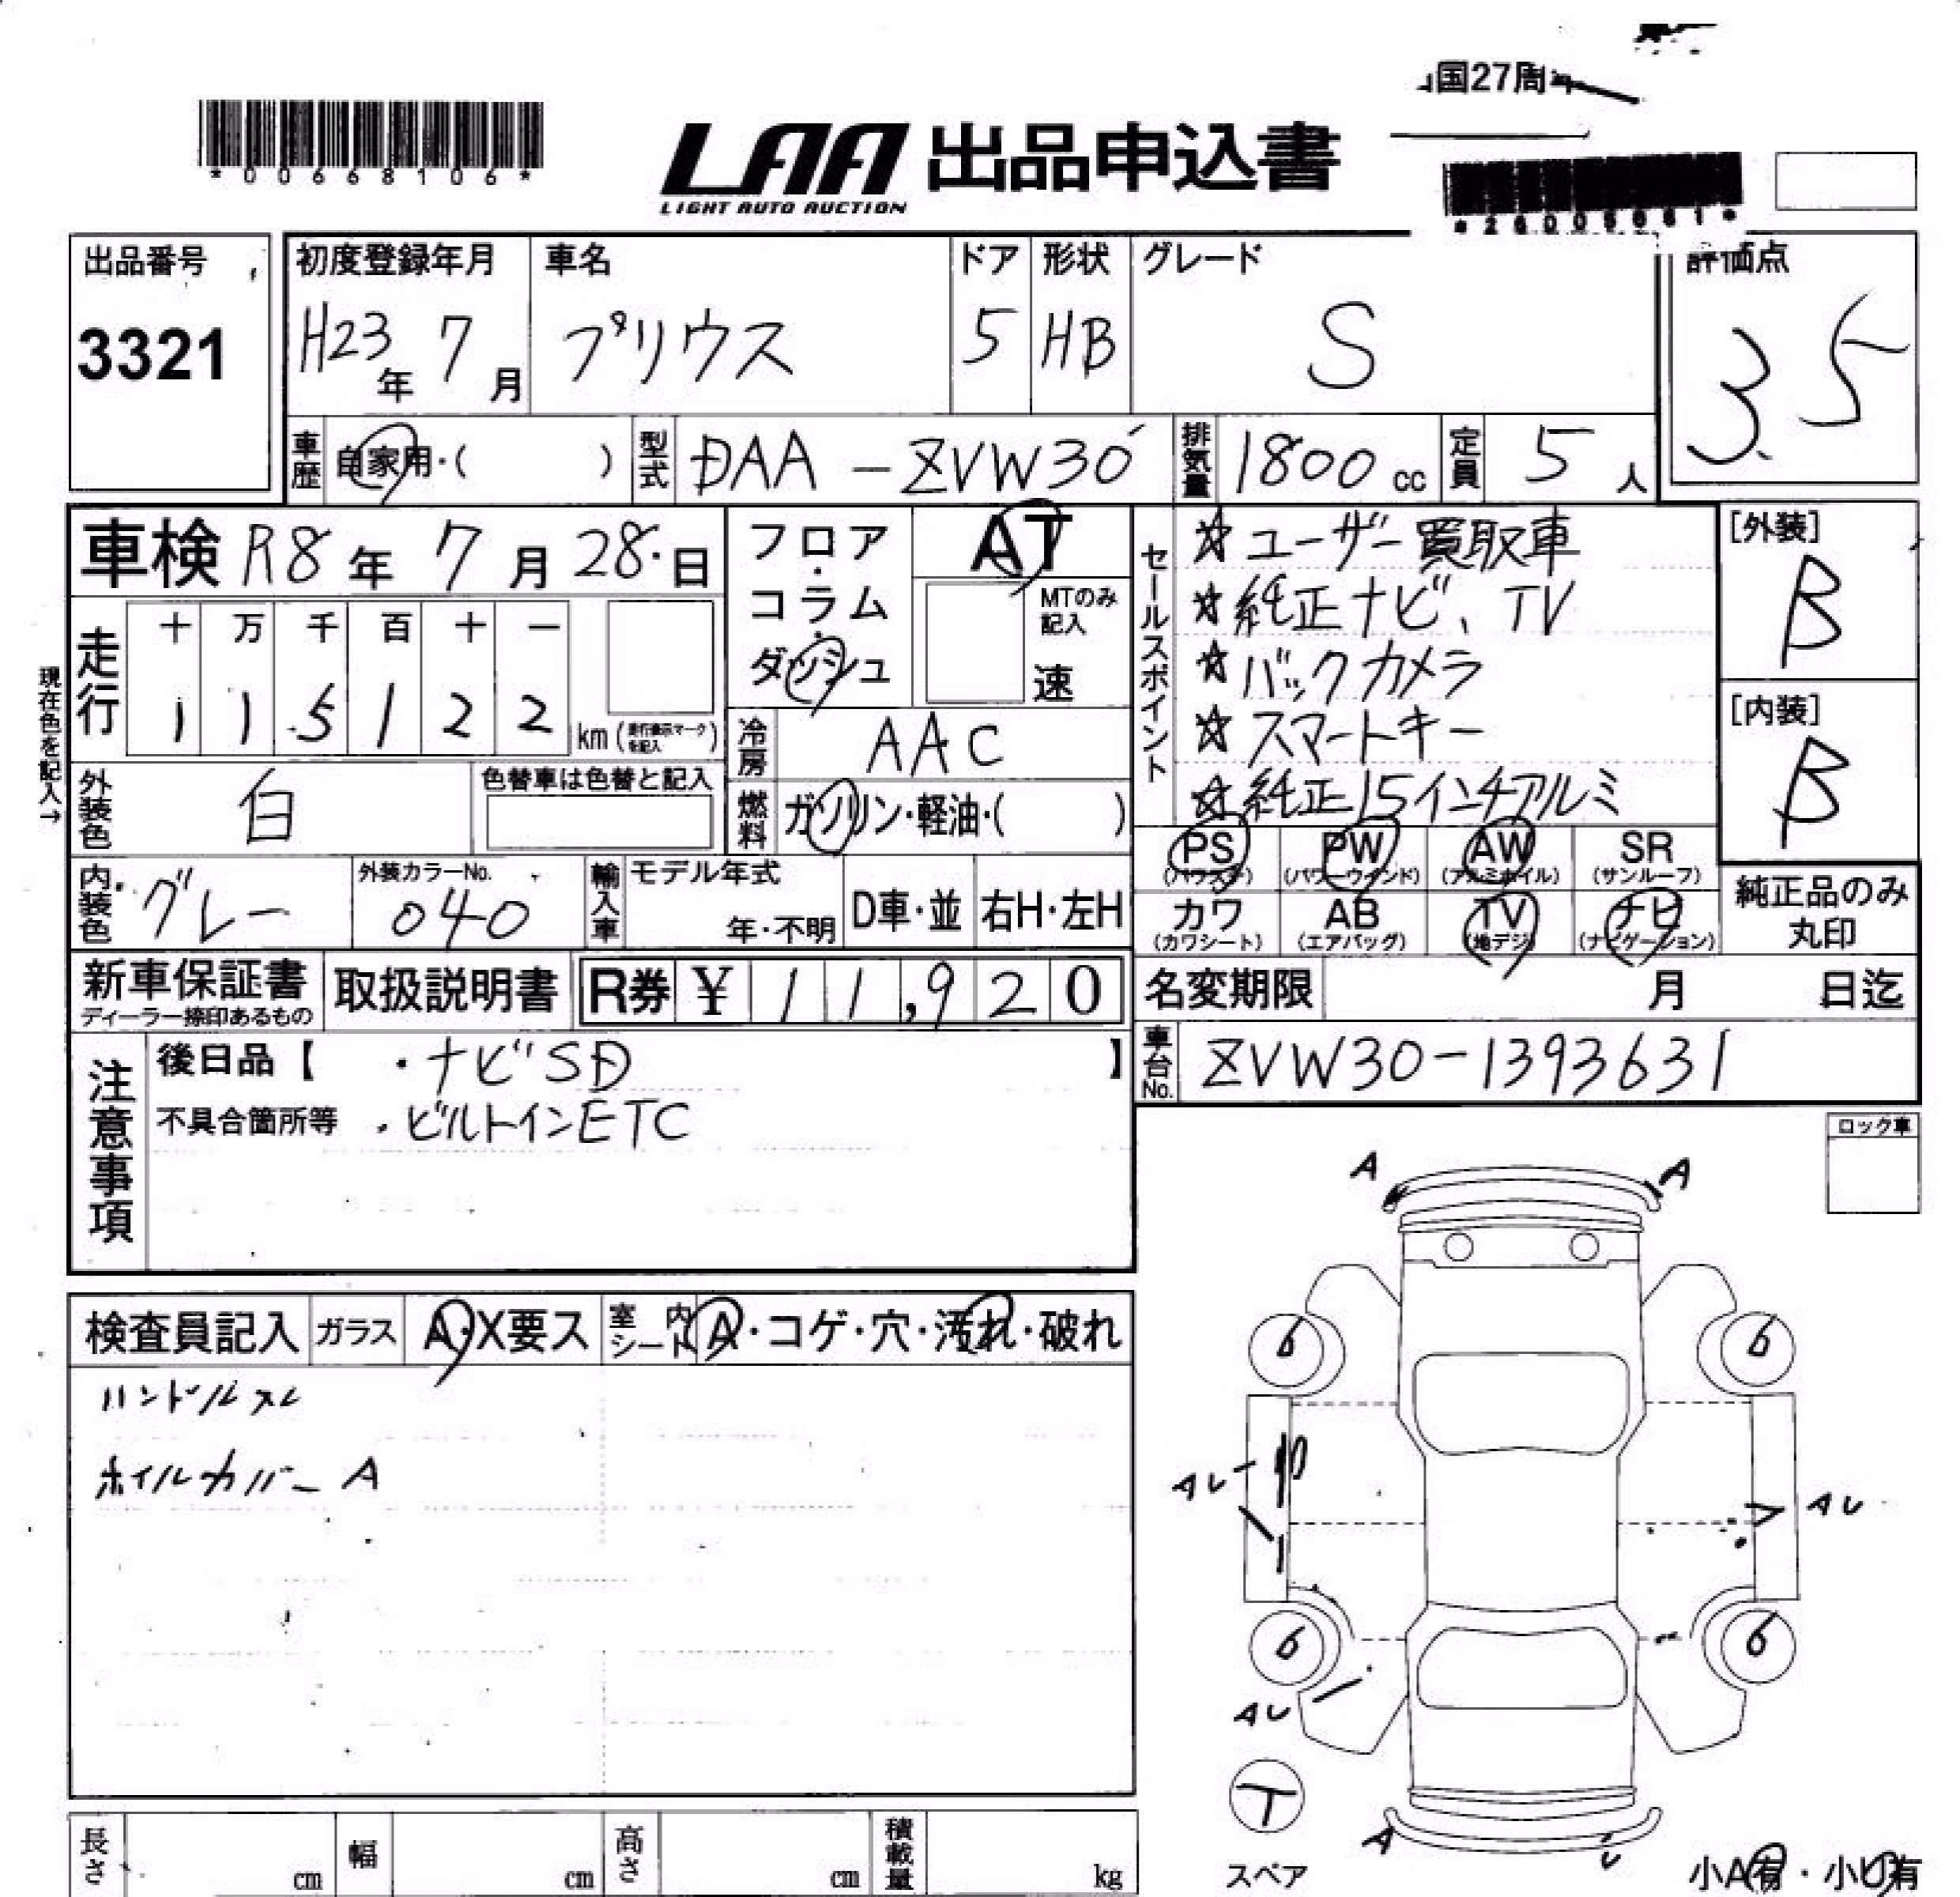 国27周
*00668106*
LAA 出品申込書
LIGHT AUTO AUCTION
出品番号
3321
初度登録年月
H23年 7月
車名
プリウス
ドア
5
形状
HB
グレード
S
評価点
3.5
車歴
自家用・( )
型式
DAA-ZVW30
排気量
1800cc
定員
5人
車検 R8年 7月 28日
フロア・コラム・ダッシュ
AT
MTのみ記入
速
セールスポイント
☆ユーザー買取車
☆純正ナビ、TV
☆バックカメラ
☆スマートキー
☆純正15インチアルミ
[外装]
B
[内装]
B
現在色を記入→
走行
十 万 千 百 十 一
1 1 5 1 2 2 km
冷房
AAC
外装色
白
色替車は色替と記入
燃料
ガソリン・軽油・( )
PS PW AW SR
(パワステ) (パワーウインド) (アルミホイル) (サンルーフ)
カワ AB TV ナビ
(カワシート) (エアバッグ) (地デジ) (ナビゲーション)
純正品のみ
丸印
内装色
グレー
外装カラーNo.
040
輸入車
モデル年式
年・不明
D車・並
右H・左H
新車保証書
ディーラー捺印あるもの
取扱説明書
R券 ¥ 11,920
名変期限 月 日迄
車台No.
ZVW30-1393631
注意事項
後日品【 ・ナビSD 】
不具合箇所等 ・ビルトインETC
ロック車
検査員記入 ガラス A・X要ス 室内シート A・コゲ・穴・汚れ・破れ
ハンドルスレ
ホイルカバーA
A A
6 6
AU AU
6 6
AU
T
スペア
A U
小A有・小U有
長さ cm 幅 cm 高さ cm 積載量 kg